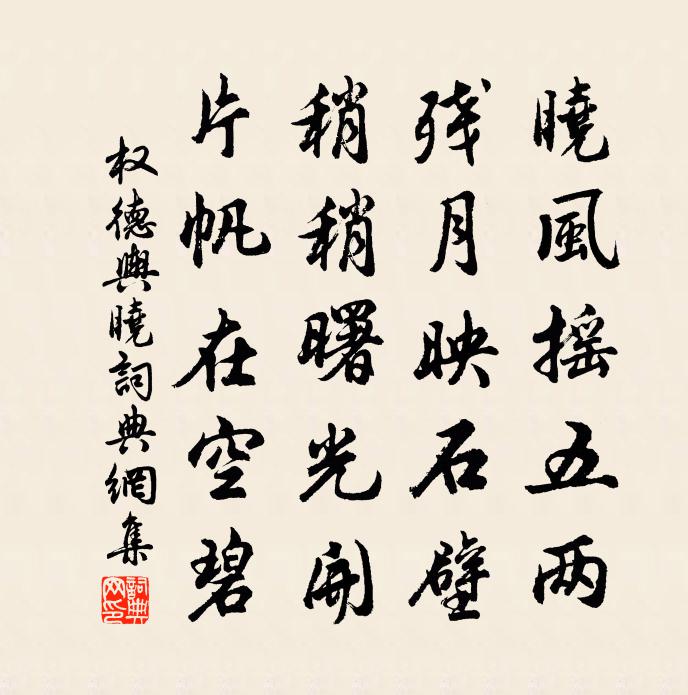 曉風摇五两
残月映石壁
稍稍曙光開
片帆在空碧
权德輿曉詞典網集
詞典網印